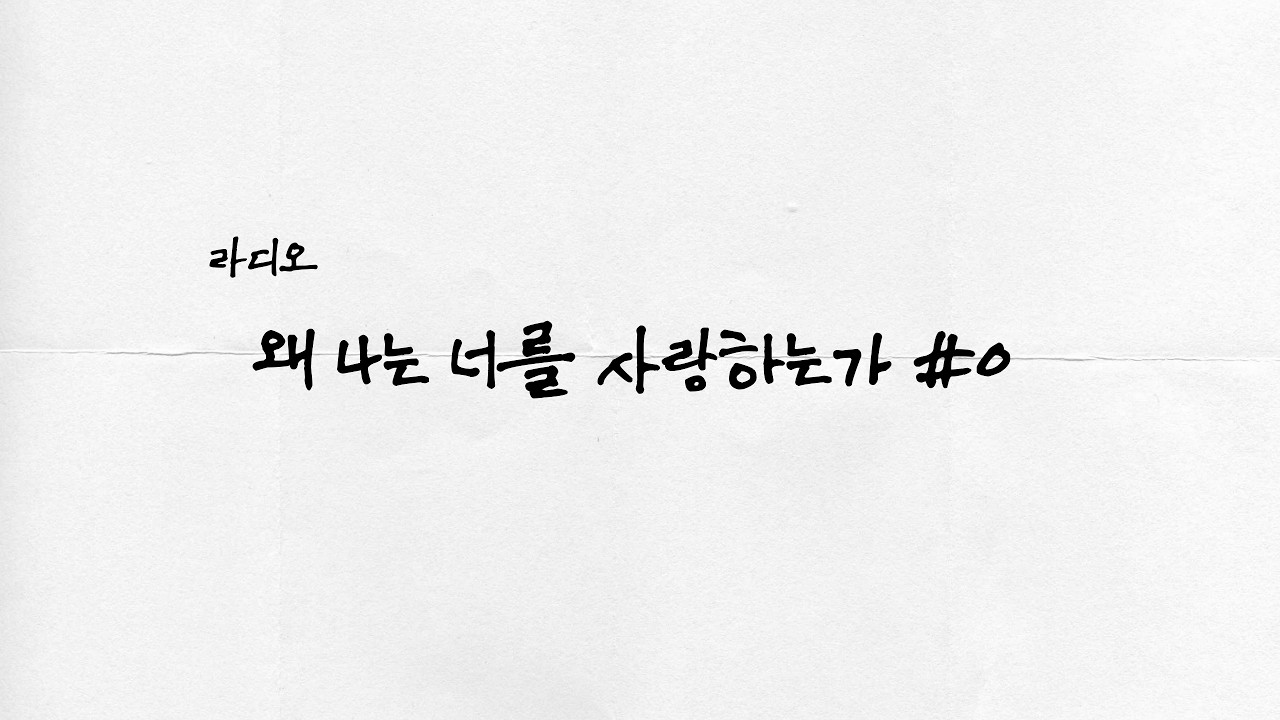 라디오
왜 나는 너를 사랑하는가 #0